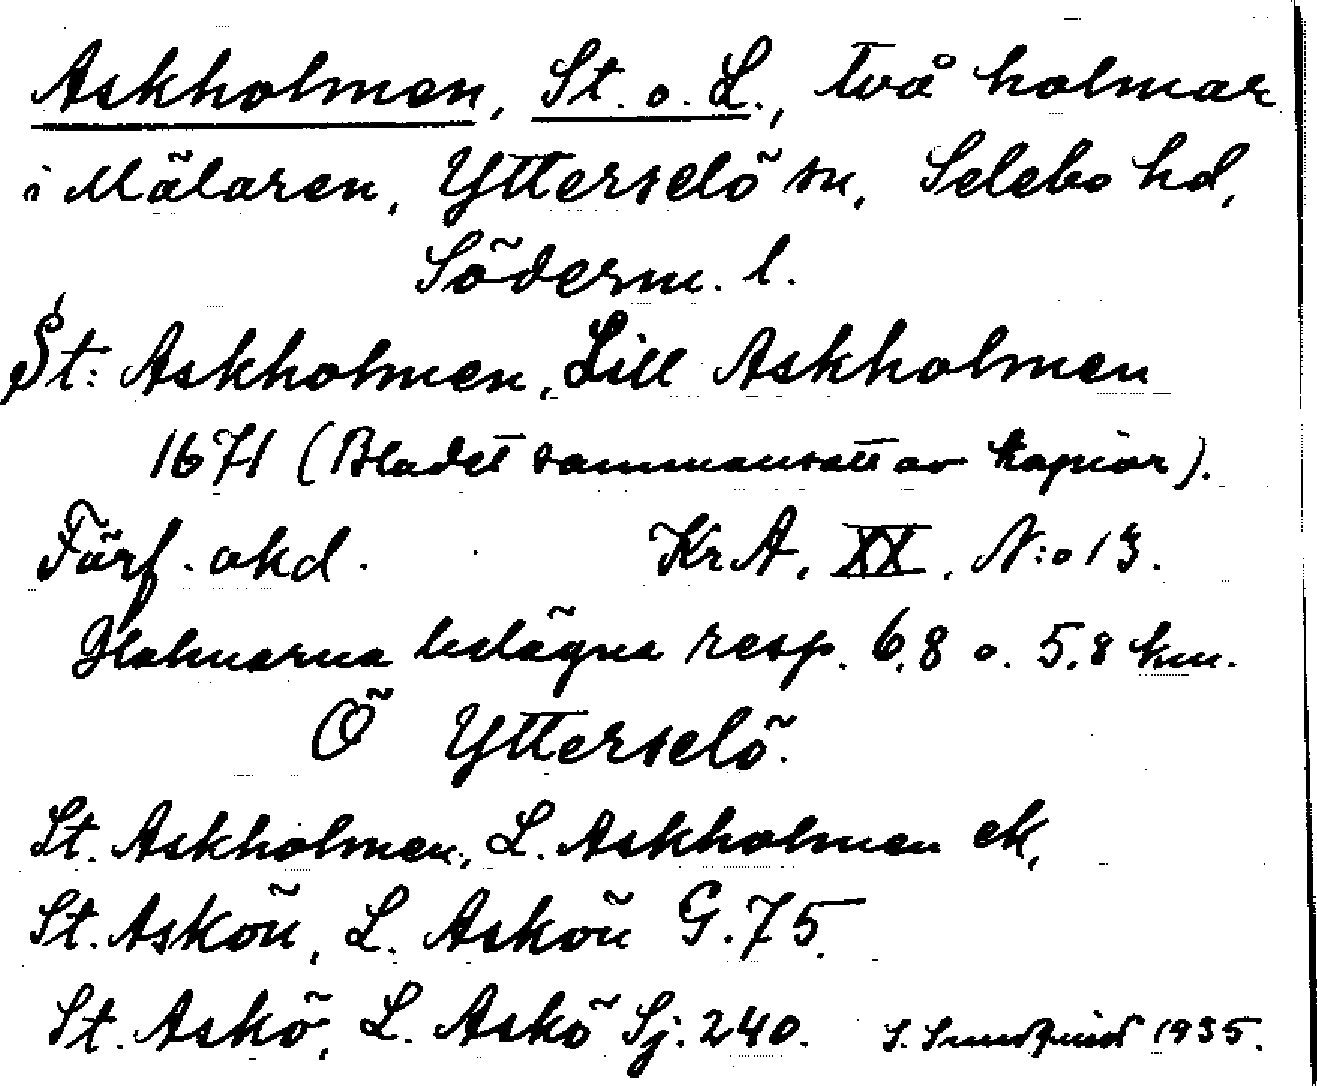 Askholmen, St. o. L., två holmar
i Mälaren, Ytterselö sn, Selebo hd,
Söderm. l.
St: Askholmen, Lill Askholmen
1671 (Bladet sammansatt av kopior).
Förf. okd. Kr A. XX. N:o 13.
Holmarna belägna resp. 6,8 o. 5,8 km.
Ö Ytterselö.
St. Askholmen, L. Askholmen ek,
St. Askön, L. Askön G. 75.
St. Askö, L. Askö Sj. 240. S. Sundquist 1935.